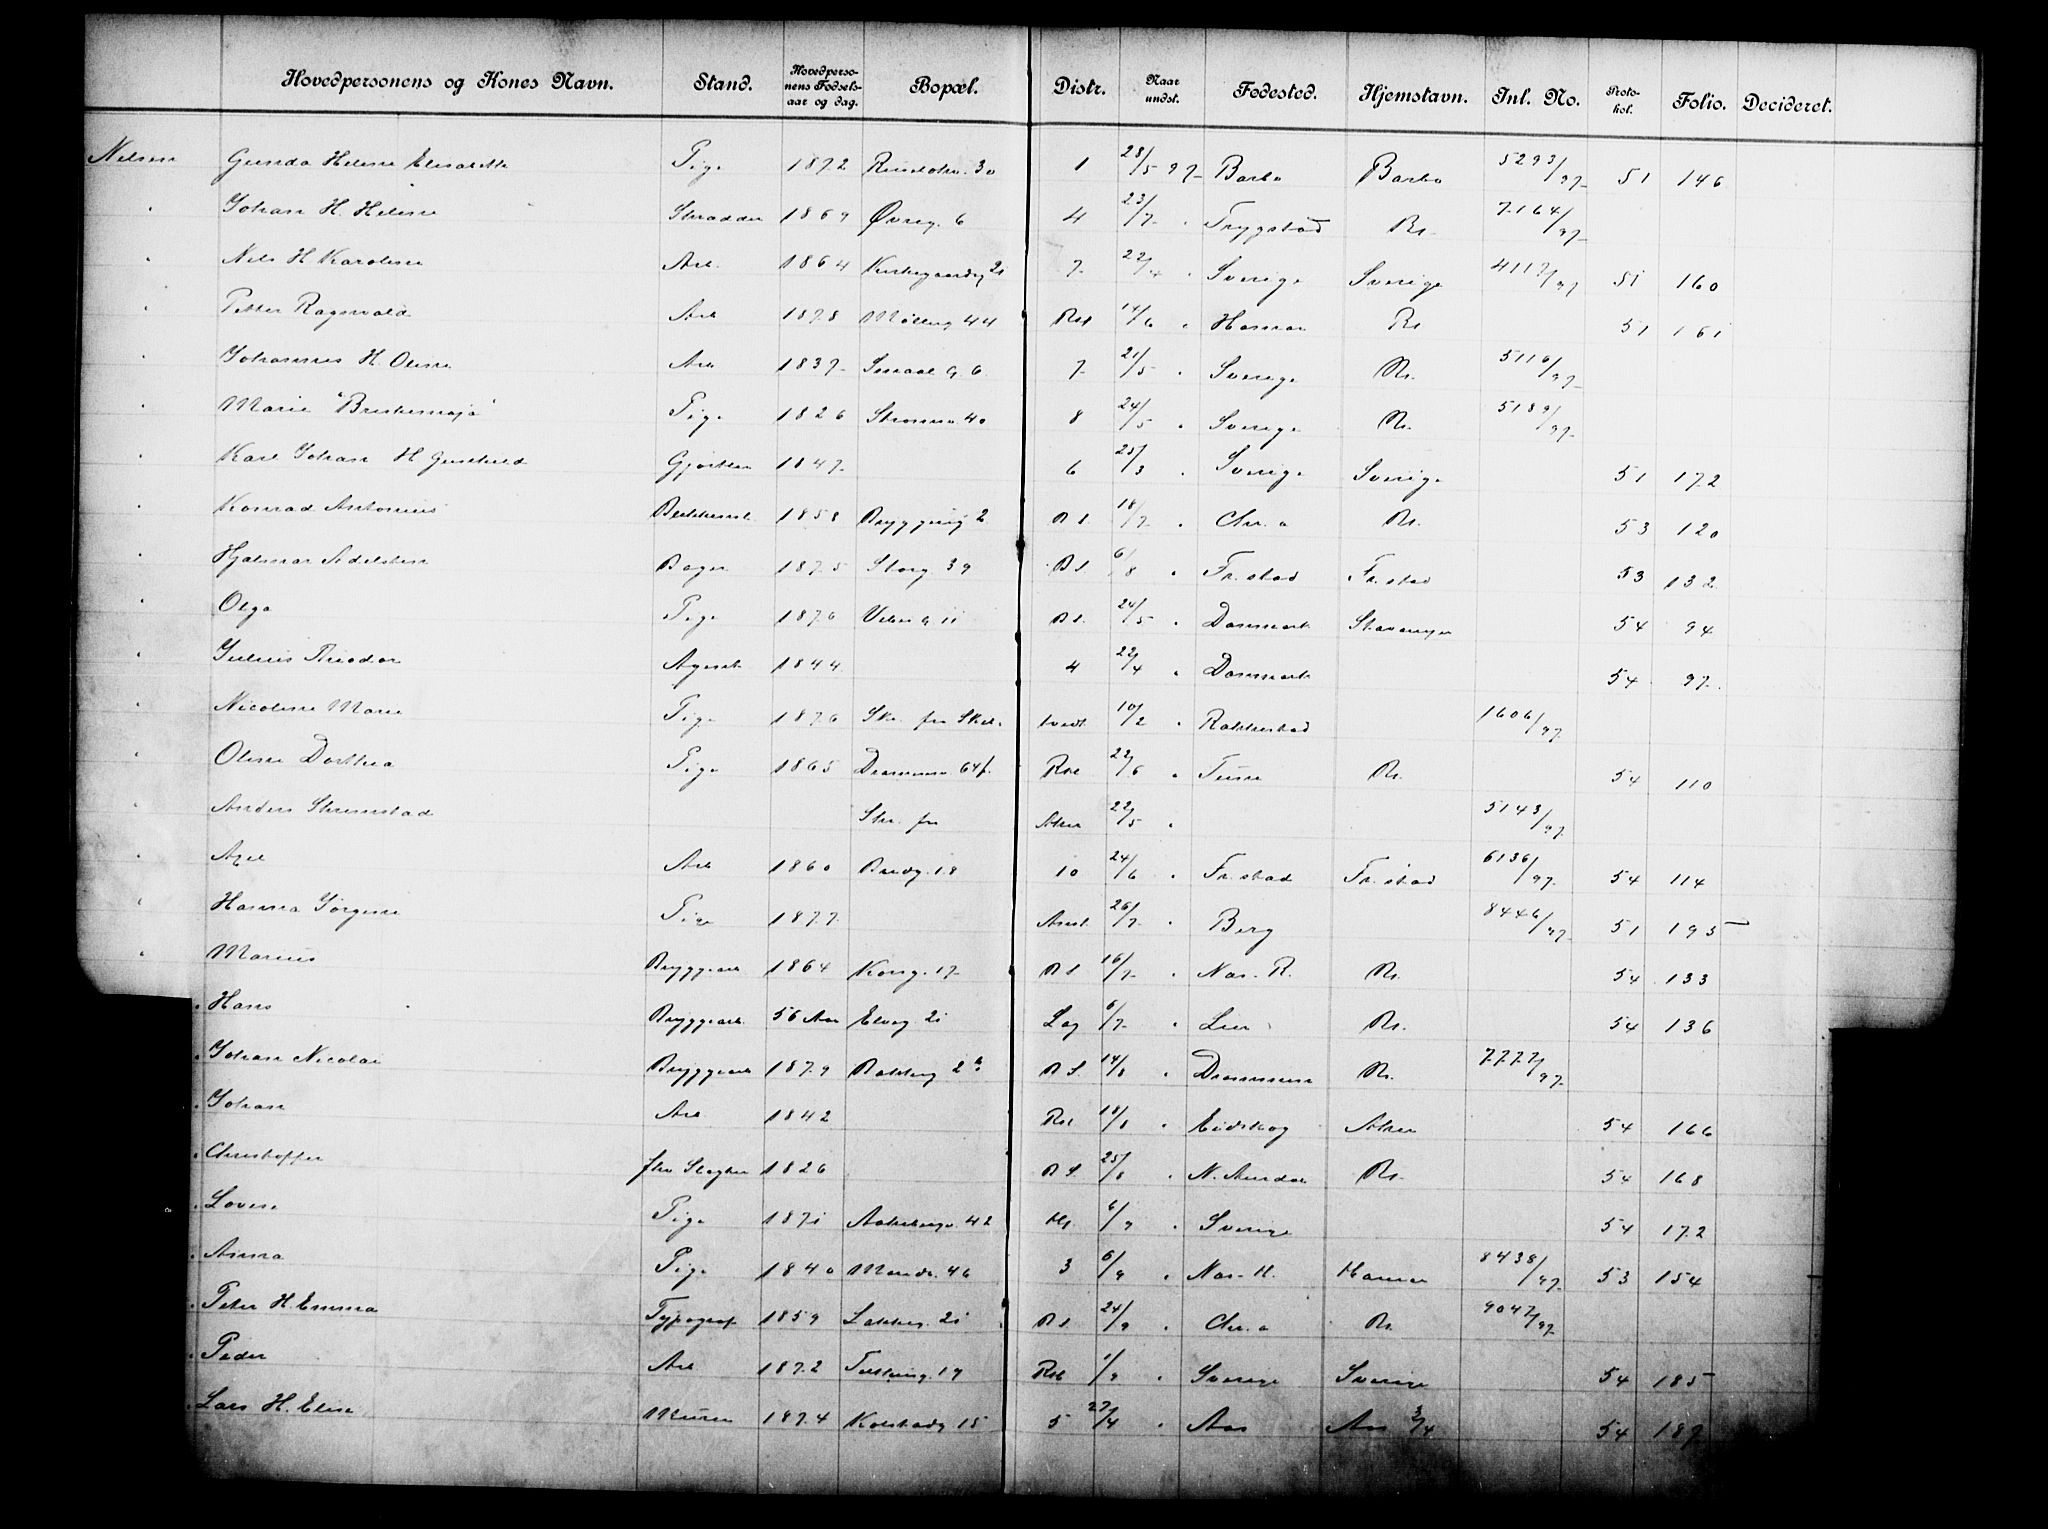 Hovedpersonens og Kones Navn. Stand. Hovedperso-nens Fødsels-aar og dag. Bopæl. Distr. Naar undst. Fødested. Hjemstavn. Inl. No. Proto-kol. Folio. Decideret.
Nilsen Gunda Helene Elisabeth Pige 1872 30 1 28/5 97 Barbo Barbo 5293/97 51 146
" Johan H. Helene Skrædder 1869 Øvreg. 6 4 23/7 " Trygstad Kr. 7164/97
" Nils H Karoline Arb. 1864 Kirkegaardsg 21 7 22/4 " Sverige Sverige 4117/97 51 160
" Petter Ragnvald Arb 1878 Møllerg 44 Rst 14/6 " Hamar Kr 51 161
" Johannes H. Oline Arb 1837 Smaal g. 6 7 21/5 " Sverige Kr. 5116/97
" Marie "Briskemaja" Pige 1826 Strømsv 40 8 24/5 " Sverige Kr. 5189/97
" Karl Johan H Gunhild Gjørtler 1847 6 25/3 " Sverige Sverige 51 172
" Konrad Antonius 1858 2 R S. 18/7 " Chr.a Kr. 53 120
" Hjalmar Adelsten Bager 1875 Storg 39 R S. 6/8 " Fr.stad Fr.stad 53 132
" Olga Pige 1876 11 R S. 24/5 " Danmark Stavanger 54 94
" Julius Theodor Agent 1844 4 22/4 " Danmark 54 97
" Nicoline Marie Pige 1876 Skr. fra Skat. tvedt 10/2 " Rakkestad 1606/97
" Oline Dorthea Pige 1865 Drammensv 64 f. Rst 22/6 " Tune Kr. 54 110
" Anders Strømstad Skr. fra Aker 22/5 " 5143/97
" Axel Arb 1860 Bredg. 18 10 24/6 " Fr.stad Fr.stad 6136/97 54 114
" Hanna Jørgine Pige 1877 Amt. 26/7 " Berg 8446/97 51 195
" Marius Bryggearb 1864 Kong. 17 R S 16/7 " Nas. R. Kr. 54 133
" Hans Bryggearb. 56 Aar Elveg. 21 Lag 6/7 " Lier Kr. 54 136
" Johan Nicolai Bryggearb 1879 Bakkeg 2 R S. 14/8 " Drammen Kr. 7777/97
" Johan Arb 1842 Rst 18/8 " Eidskog Aker 54 166
" Christoffer fhv Slagter 1826 R S. 25/8 " N. Aurdal Kr. 54 168
" Lovise Pige 1871 Aakebergv. 42 6/9 " Sverige 54 172
" Anna Pige 1840 46 3 6/9 " Nas-H. Hamar 8438/97 53 154
" Peter H. Emma Typograf 1859 Lakkeg. 21 R S. 24/9 " Chr.a Kr. 9047/97
" Peder Arb 1872 19 Rst 1/9 " Sverige Sverige 54 185
" Lars H. Elise Murer 1874 Kolstadg 15 5 27/4 " Aas Aas 3/4 54 187